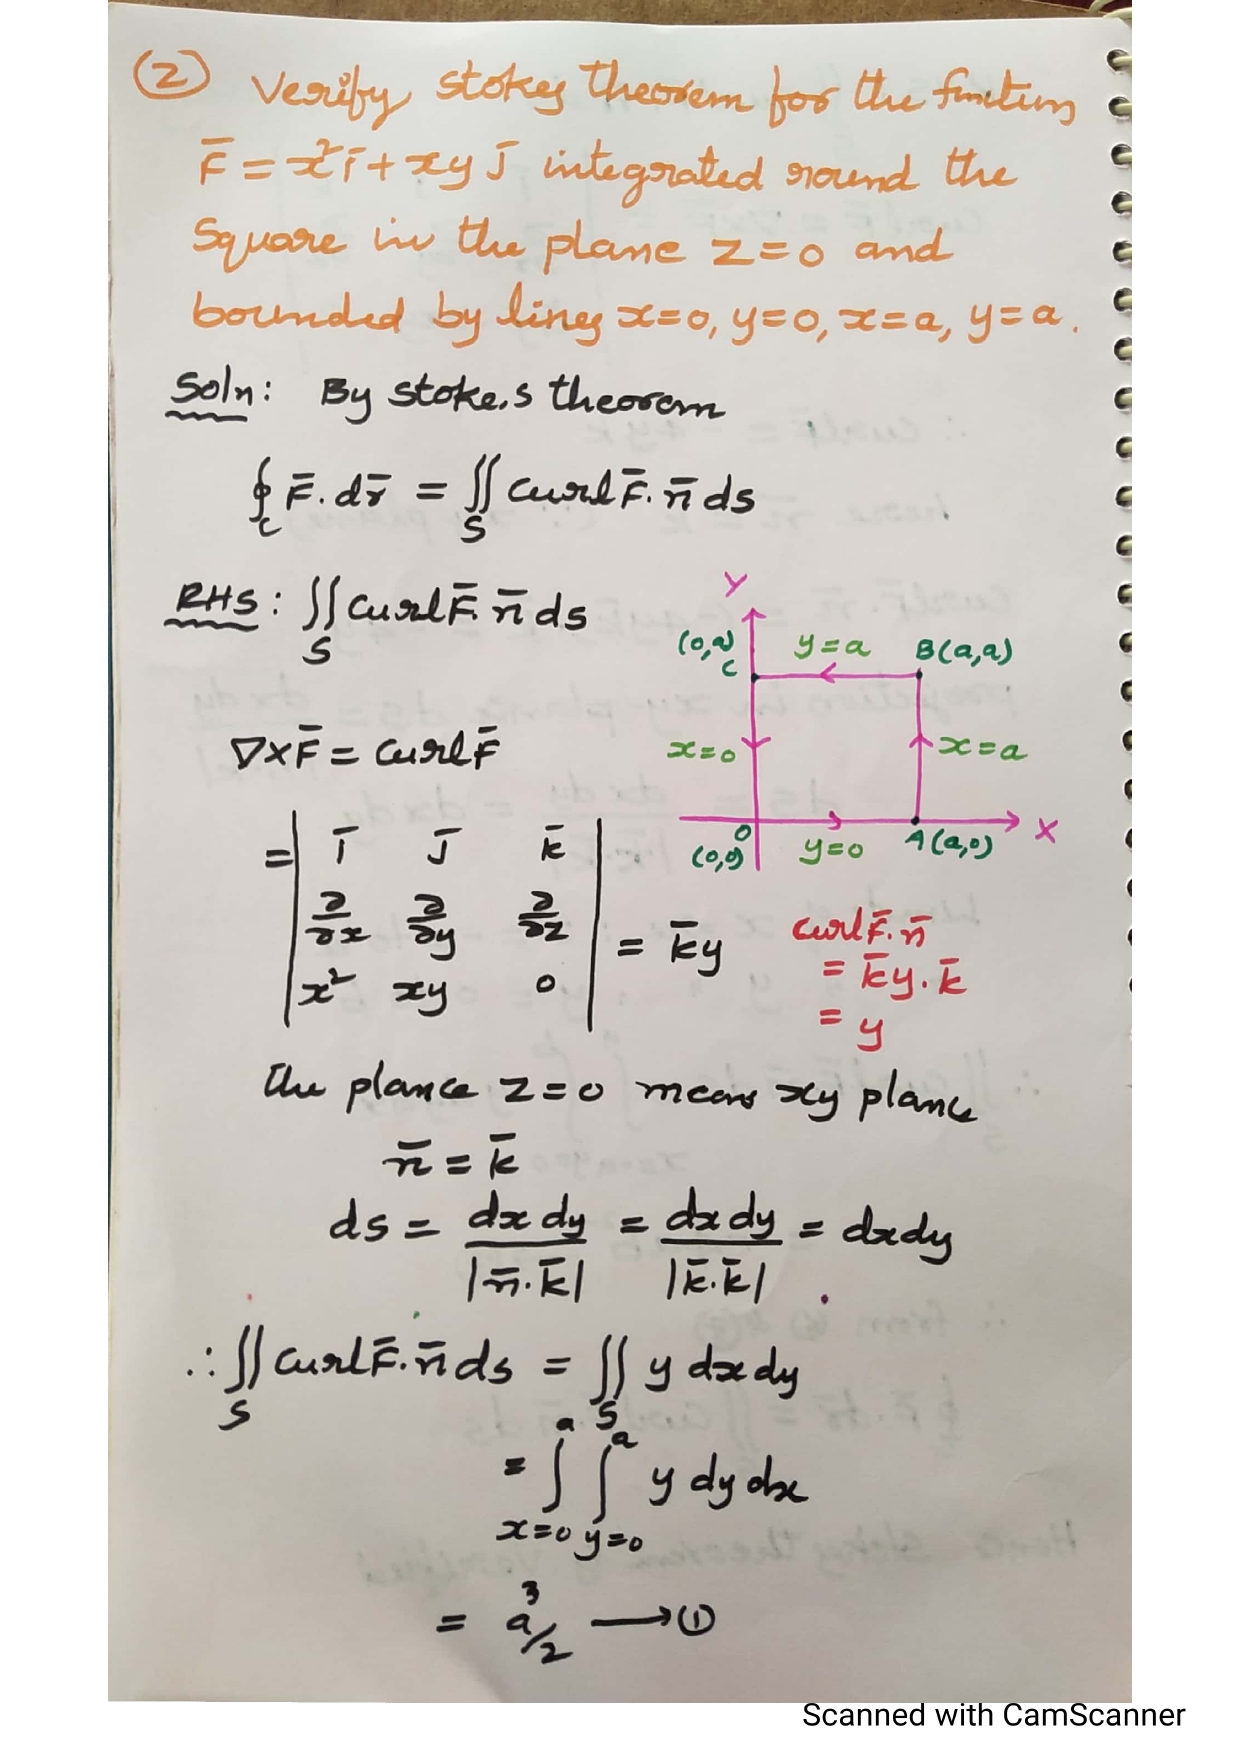 (2) Verify stokes theorem for the functions
F̄ = x²ī + xy j̄ integrated round the
Square in the plane z=0 and
bounded by lines x=0, y=0, x=a, y=a.
Soln: By stoke,s theorem
∮_C F̄.dr̄ = ∬_S Curl F̄. n̄ ds
RHS: ∬_S Curl F̄. n̄ ds
Y
(0,a) C
y=a
B(a,a)
x=0
x=a
O (0,0)
y=0
A(a,0)
X
∇×F̄ = Curl F̄
= | ī j̄ k̄ |
| ∂/∂x ∂/∂y ∂/∂z |
| x² xy 0 | = k̄y
Curl F̄. n̄
= k̄y. k̄
= y
The plance z=0 means xy plance
n̄ = k̄
ds = dx dy / |n̄.k̄| = dx dy / |k̄.k̄| = dxdy
∴ ∬_S Curl F̄. n̄ ds = ∬_S y dx dy
= ∫_{x=0}^{a} ∫_{y=0}^{a} y dy dx
= a³/2 → (1)
Scanned with CamScanner